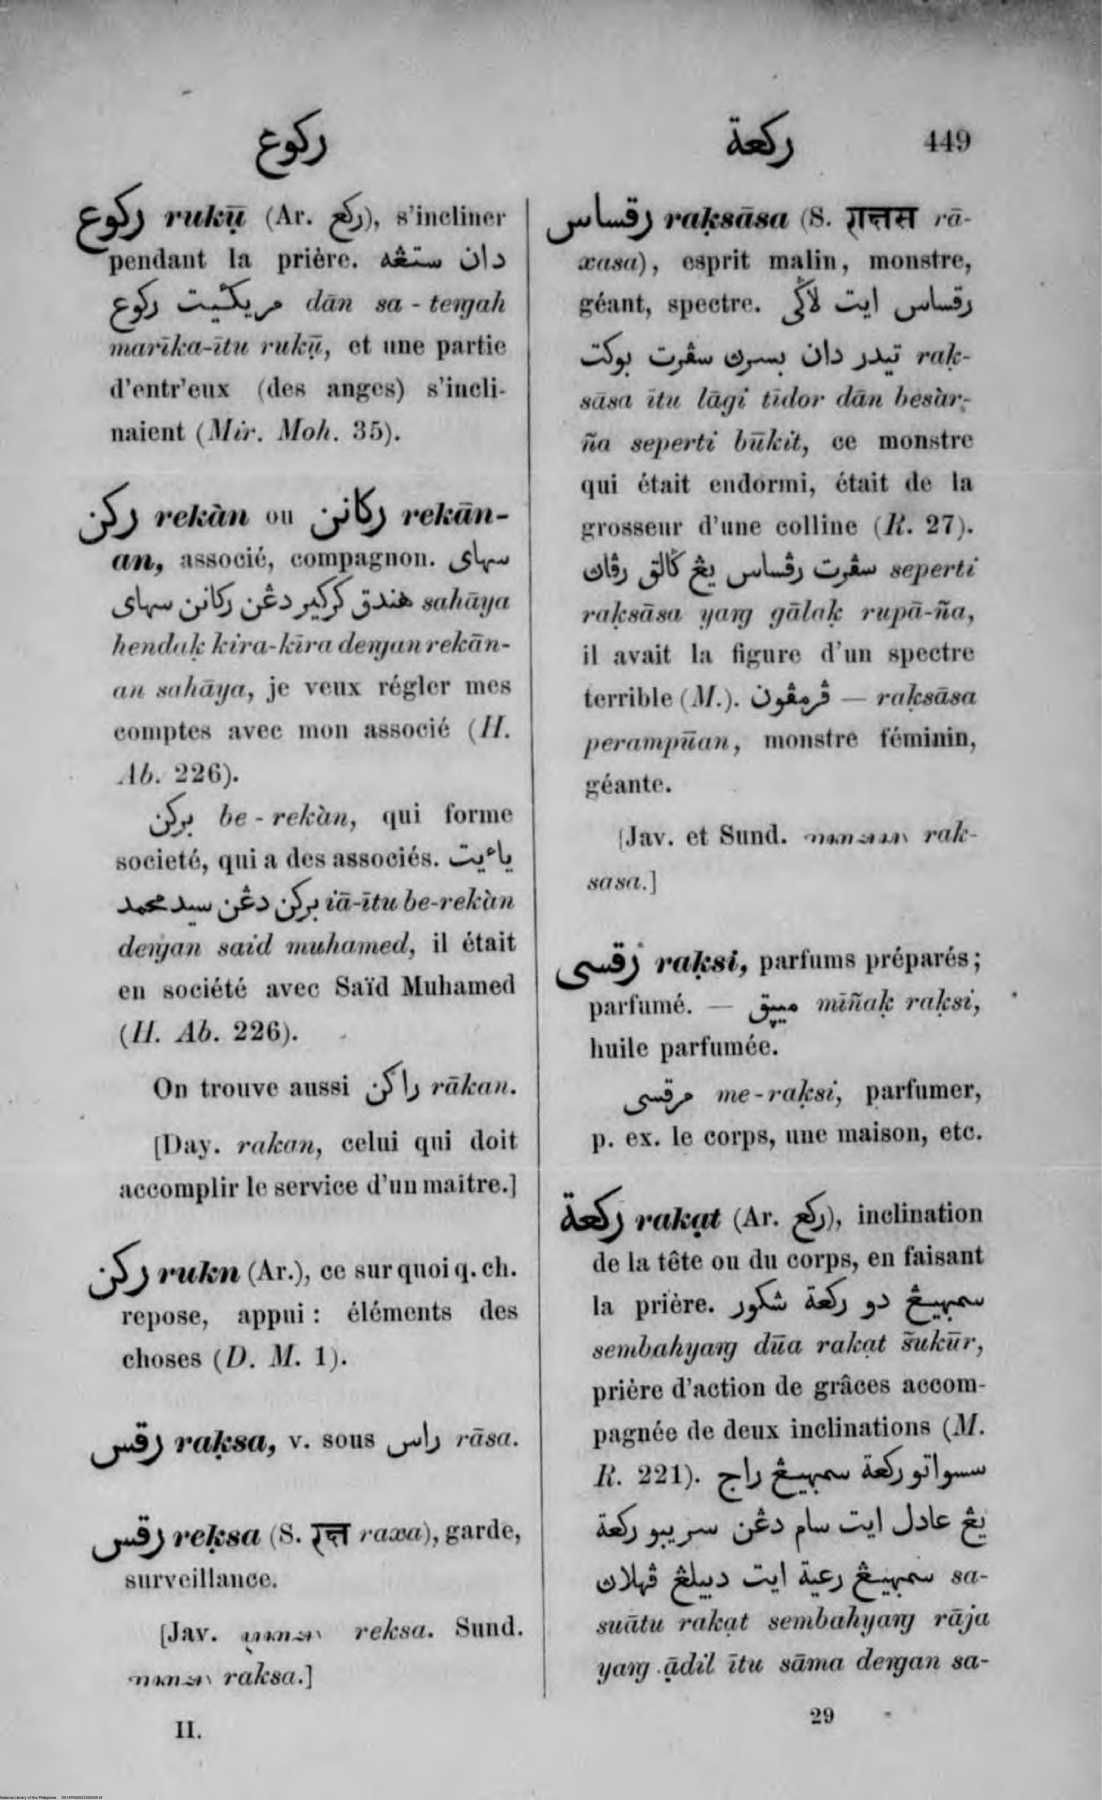 ركوع
ركعة 449
ركوع rukụ̄ (Ar. ركع), s'incliner
pendant la prière. دان ستڠه
مريكئيت ركوع dān sa-teṅgah
marīka-ītu rukụ̄, et une partie
d'entr'eux (des anges) s'incli-
naient (Mir. Moh. 35).
ركن rekàn ou ركانن rekān-
an, associé, compagnon. سهاي
هندق كركير دڠن ركانن سهاي sahāya
hendaḳ kira-kīra deṅgan rekān-
an sahāya, je veux régler mes
comptes avec mon associé (H.
Ab. 226).
بركن be-rekàn, qui forme
societé, qui a des associés. ياءيت
بركن دڠن سيد محمد iā-ītu be-rekàn
deṅgan said muhamed, il était
en société avec Saïd Muhamed
(H. Ab. 226).
On trouve aussi راكن rākan.
[Day. rakan, celui qui doit
accomplir le service d'un maitre.]
ركن rukn (Ar.), ce sur quoi q. ch.
repose, appui : éléments des
choses (D. M. 1).
رقس raḳsa, v. sous راس rāsa.
رقس reḳsa (S. रक्ष raxa), garde,
surveillance.
[Jav. reksa. Sund.
raksa.]
II.
رقساس raḳsāsa (S. राक्षस rā-
xasa), esprit malin, monstre,
géant, spectre. رقساس ايت لاڬي
تيدر دان بسرڽ سڤرت بوكت raḳ-
sāsa ītu lāgi tīdor dān besàr-
ña seperti būkit, ce monstre
qui était endormi, était de la
grosseur d'une colline (R. 27).
سڤرت رقساس يڠ ڬالق رڤاڽ seperti
raḳsāsa yaṅg gālaḳ rupā-ña,
il avait la figure d'un spectre
terrible (M.). ڤرمڤون — raḳsāsa
perampūan, monstre féminin,
géante.
[Jav. et Sund. rak-
sasa.]
رقسي raḳsi, parfums préparés;
parfumé. — ميڽق mīñaḳ raḳsi,
huile parfumée.
مرقسي me-raḳsi, parfumer,
p. ex. le corps, une maison, etc.
ركعة rakạt (Ar. ركع), inclination
de la tête ou du corps, en faisant
la prière. سمبهيڠ دو ركعة شكور
sembahyaṅg dūa rakạt s̃ukūr,
prière d'action de grâces accom-
pagnée de deux inclinations (M.
R. 221). سسواتو ركعة سمبهيڠ راج
يڠ عادل ايت سام دڠن سريبو ركعة
سمبهيڠ رعية ايت دبيلڠ ڤهلاڽ sa-
suātu rakạt sembahyaṅg rāja
yaṅg ạ̄dil ītu sāma deṅgan sa-
29